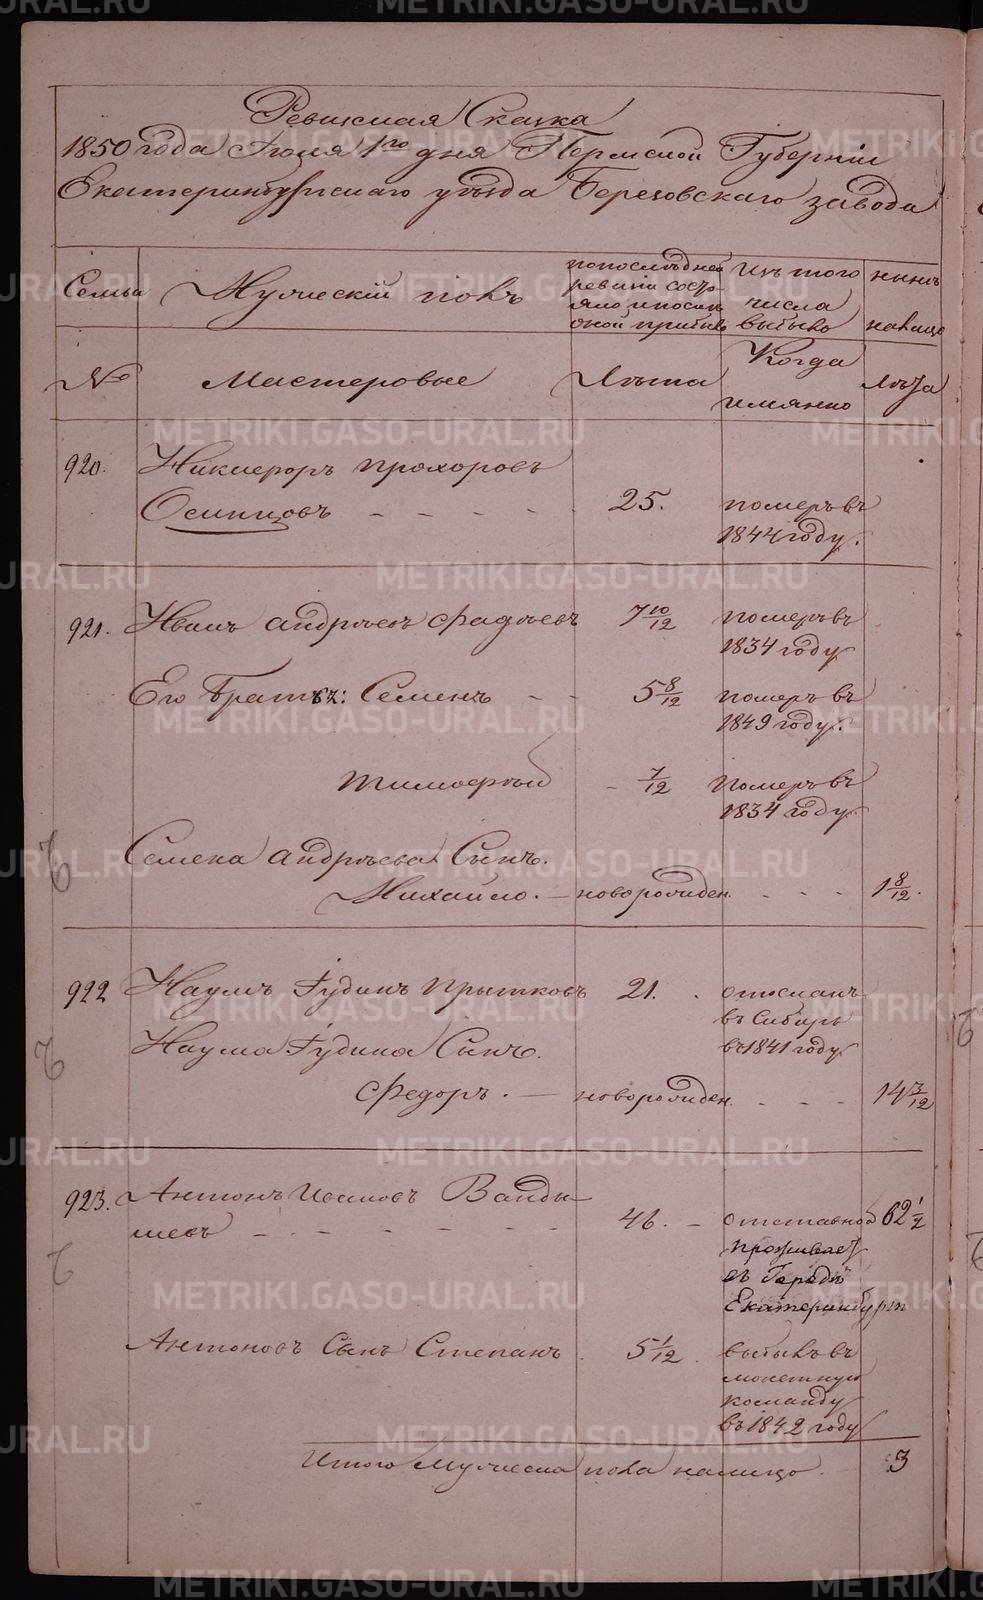 Ревизская Сказка
1850 года Июля 1го дня Пермской Губерніи
Екатеринбургскаго уѣзда Березовскаго завода
Семьи
Мужескій полъ
по послѣдней
ревизіи состо-
яло и после
оной прибыло
Изъ того
числа
выбыло
нынѣ
налицо
№
Мастеровые
Лѣта
Когда
имянно
Лѣта
920. Никифоръ Прохоровъ
Осинцовъ - - - - - 25. померъ въ
1844 году.
921. Иванъ Андрѣевъ Фадѣевъ 7 10/12 померъ въ
1834 году
Его Братья: Семенъ - - 5 8/12 померъ въ
1849 году.
Тимофѣй - 7/12 померъ въ
1834 году
Семена Андрѣева Сынъ.
Михайло. - новорожден. - - - 1 8/12.
922 Наумъ Іудинъ Прытковъ 21. отосланъ
въ Сибирь
въ 1841 году
Наума Іудина Сынъ.
Федоръ. - новорожден. - - - 14 3/12
923. Антонъ Ивановъ Ванды-
шевъ - - - - - - - 46. - отставной 62 1/2
проживает
въ Городѣ
Екатеринбургѣ
Антоновъ Сынъ Степанъ. 5 1/12. выбылъ въ
монетную
команду
въ 1842 году
Итого Мужеска пола налицо. 3
METRIKI.GASO-URAL.RU